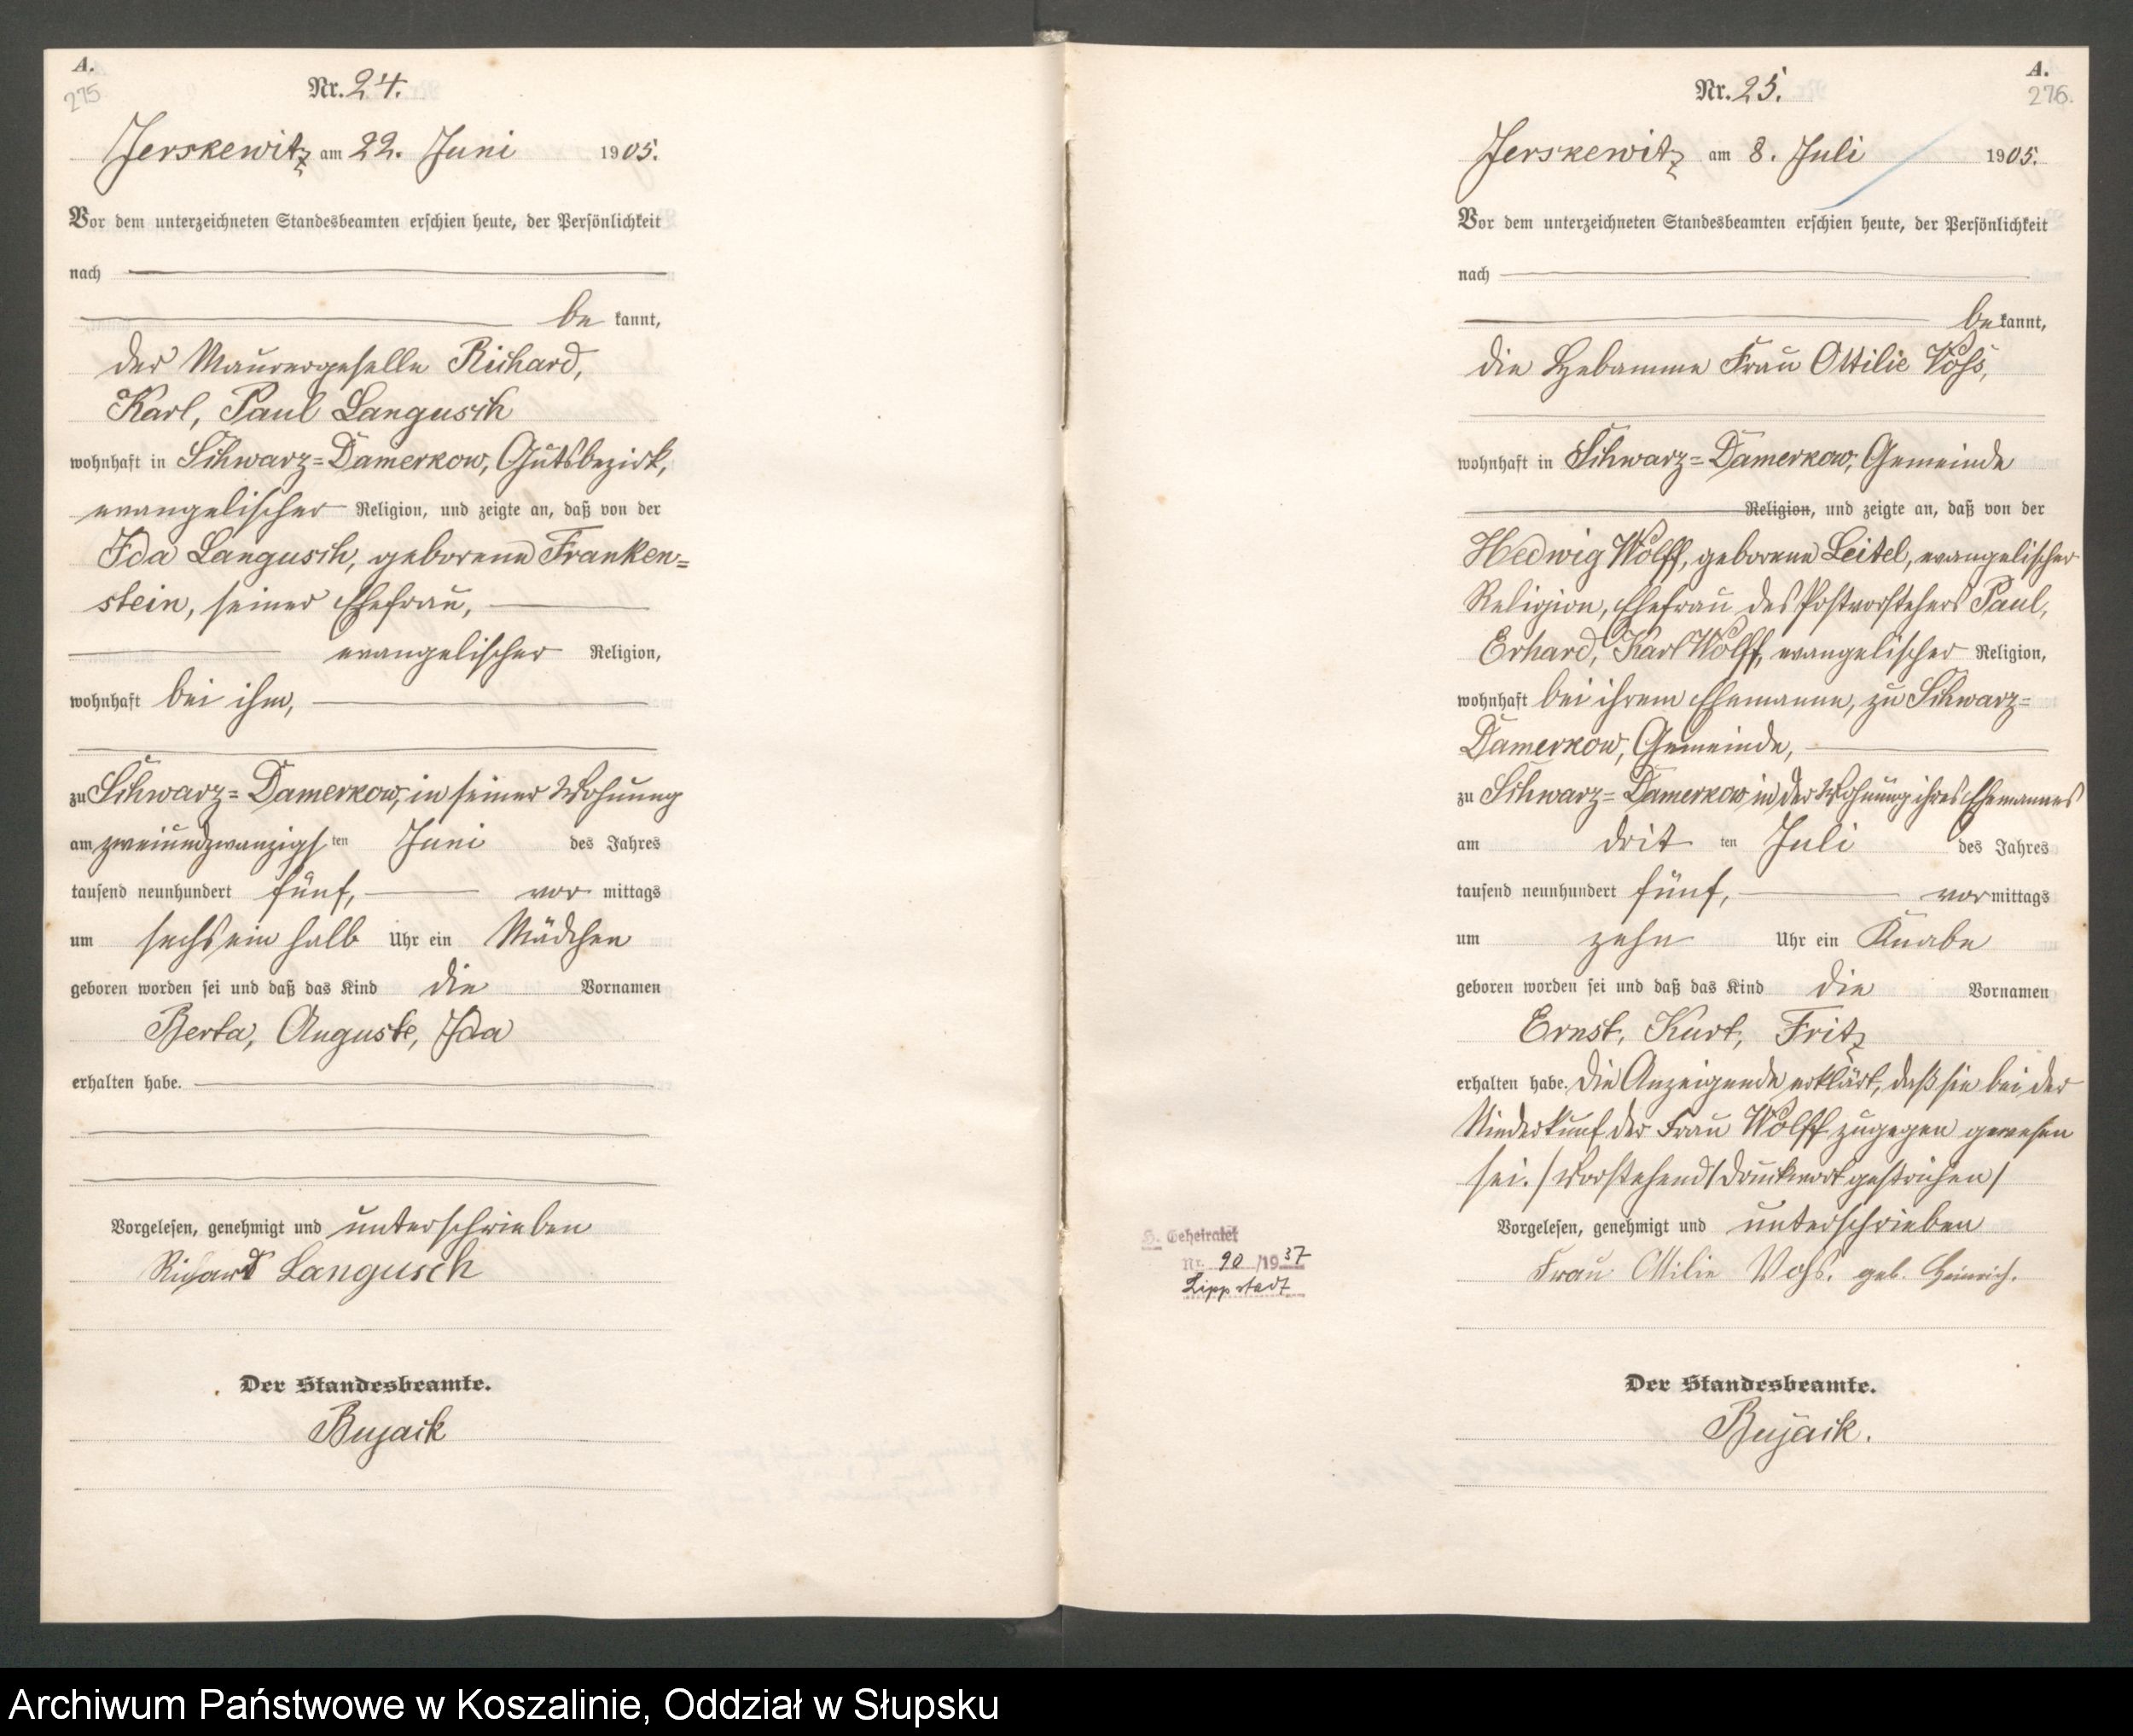 A.
275
Nr. 24.
Jerskewitz am 22. Juni 1905.
Vor dem unterzeichneten Standesbeamten erschien heute, der Persönlichkeit
nach
be kannt,
der Maurergeselle Richard,
Karl, Paul Langusch
wohnhaft in Schwarz=Damerkow, Gutsbezirk,
evangelischer Religion, und zeigte an, daß von der
Ida Langusch, geborene Franken=
stein, seiner Ehefrau,
evangelischer Religion,
wohnhaft bei ihm,
zu Schwarz=Damerkow, in seiner Wohnung
am zweiundzwanzigs ten Juni des Jahres
tausend neunhundert fünf, vor mittags
um sechs ein halb Uhr ein Mädchen
geboren worden sei und daß das Kind die Vornamen
Berta, Auguste, Ida
erhalten habe.
Vorgelesen, genehmigt und unterschrieben
Richard Langusch
Der Standesbeamte.
Bujack
A.
276.
Nr. 25.
Jerskewitz am 8. Juli 1905.
Vor dem unterzeichneten Standesbeamten erschien heute, der Persönlichkeit
nach
be kannt,
die Hebamme Frau Ottilie Voss,
wohnhaft in Schwarz=Damerkow, Gemeinde
Religion, und zeigte an, daß von der
Hedwig Wolff, geborene Leitel, evangelischer
Religion, Ehefrau des Postvorstehers Paul,
Erhard, Karl Wolff, evangelischer Religion,
wohnhaft bei ihrem Ehemanne, zu Schwarz=
Damerkow, Gemeinde,
zu Schwarz=Damerkow in der Wohnung ihres Ehemannes
am drit ten Juli des Jahres
tausend neunhundert fünf, vor mittags
um zehn Uhr ein Knabe
geboren worden sei und daß das Kind die Vornamen
Ernst, Kurt, Fritz
erhalten habe. Die Anzeigende erklärt, daß sie bei der
Niederkunf der Frau Wolff zugegen gewesen
sei. / Vorstehend 1 Druckwort gestrichen /
Vorgelesen, genehmigt und unterschrieben
Frau Ottilie Voss. geb. Heinrich.
Der Standesbeamte.
Bujack.
H. Geheiratet
Nr. 90 /1937
Lippstadt
Archiwum Państwowe w Koszalinie, Oddział w Słupsku